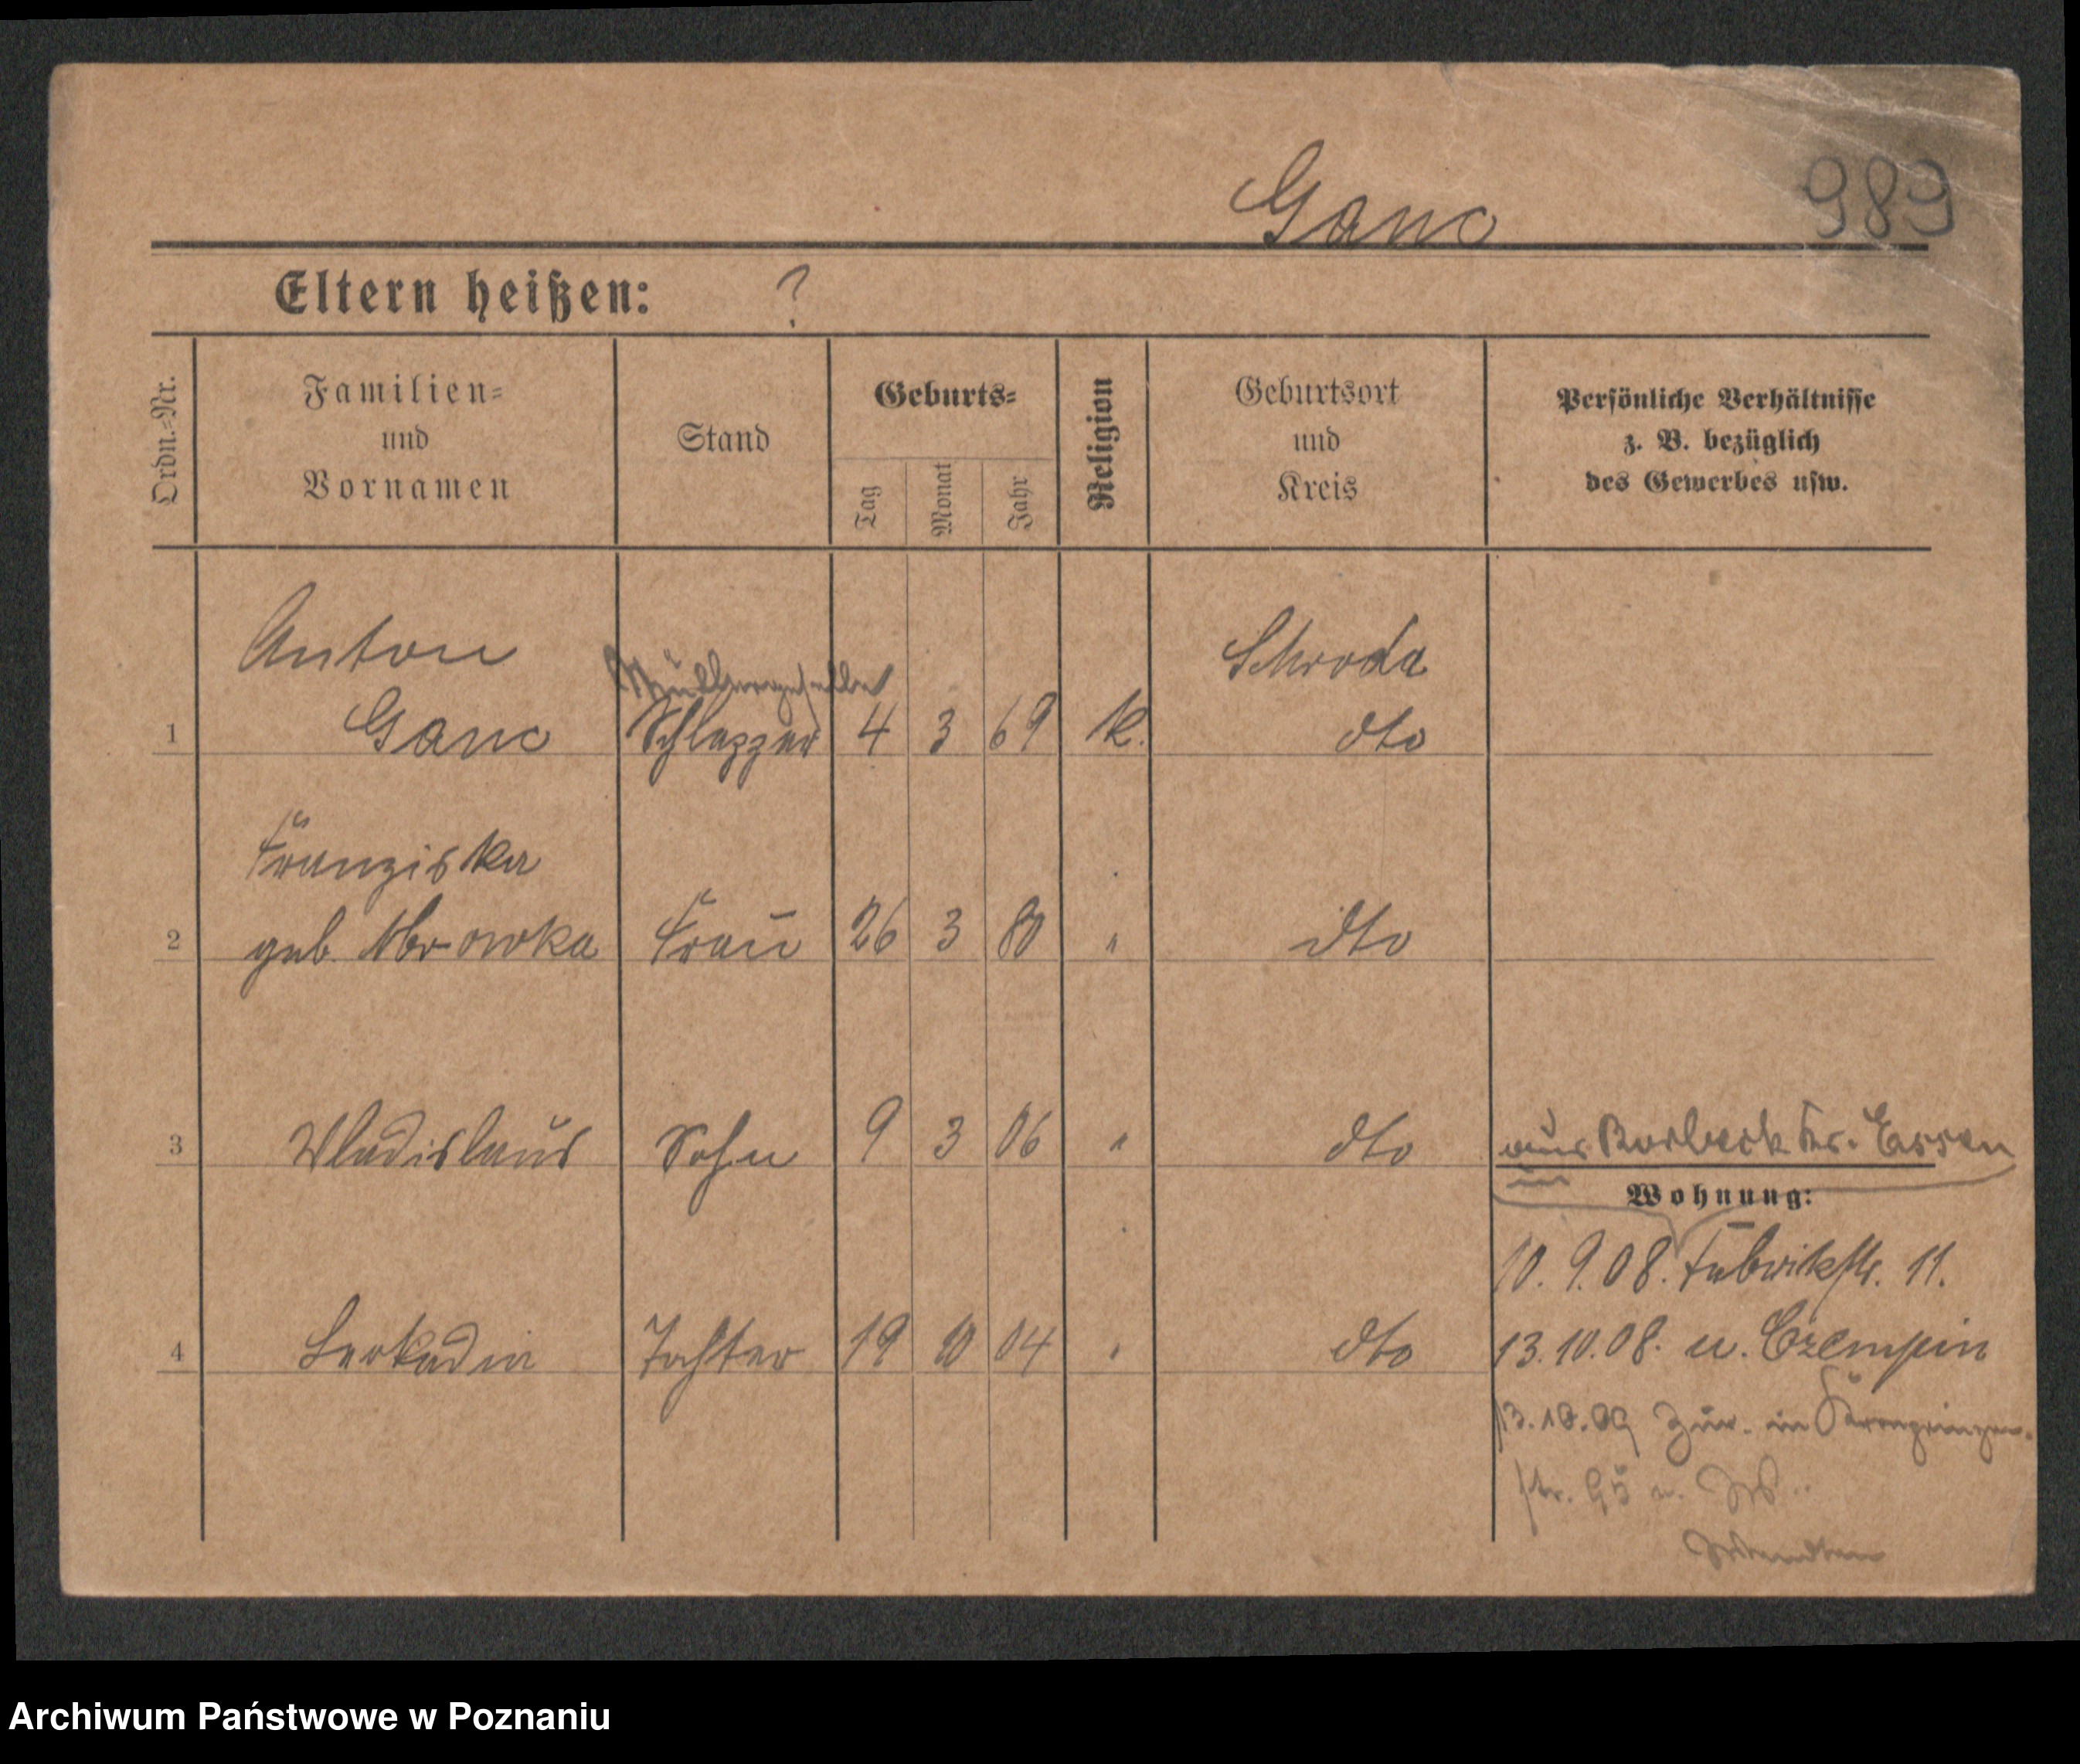 Ganc
989
Eltern heißen: ?
Ordn.-Nr.
Familien-
und
Vornamen
Stand
Geburts-
Tag
Monat
Jahr
Religion
Geburtsort
und
Kreis
Persönliche Verhältnisse
z. B. bezüglich
des Gewerbes usw.
Anton
Schroda
Müllergeselle
1 Ganc Schlepper 4 3 69 K. dto
Franziska
2 geb. Frau 26 3 80 " dto
3 Wladislaus Sohn 9 3 06 " dto aus Borbeck Kr. Essen
Wohnung:
10. 9. 08. Fabrikstr. 11.
4 Leokadia Tochter 19 10 04 " dto 13. 10. 08. n. Czempin
13. 10. 09 Zur. in Kronprinzen-
str. 95
Archiwum Państwowe w Poznaniu